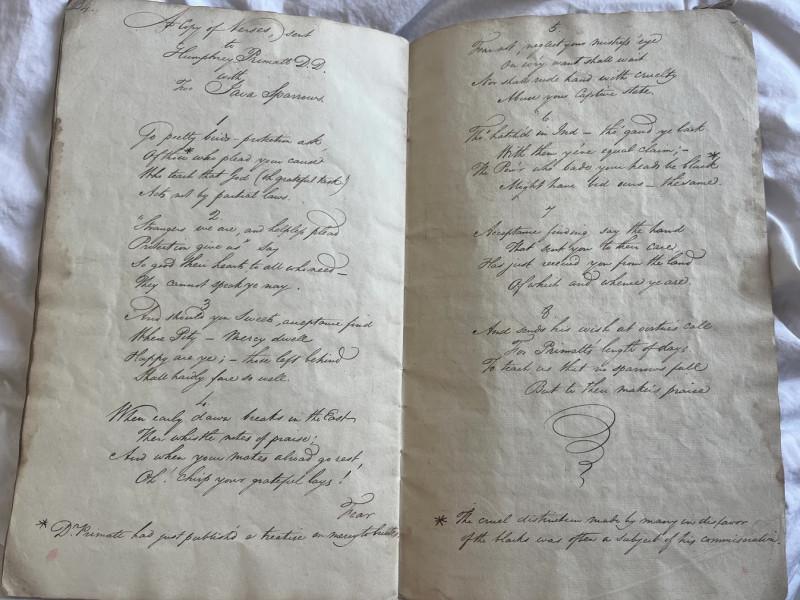 24.
A Copy of Verses, sent
to
Humphrey Primatt D.D.
with
Two Java Sparrows.
1
Go pretty birds – protection ask
Of those* who plead your cause
Who teach that God (oh grateful task!)
Acts not by partial laws.
2
"Strangers we are, and helpless plead
Protection give us" say
So good their hearts to all who need –
They cannot speak ye nay.
3
And should you Sweets, acceptance find
Where Pity – Mercy dwell
Happy are ye; – those left behind
Shall hardly fare so well.
4
When early dawn breaks in the East
Then whistle notes of praise;
And when your mates abroad go rest
Oh! Chirp your grateful lays!
Fear
* Dr. Primatt had just publish'd a treatise on mercy to brutes.
5.
Fear not; neglect your eye
On wiry want shall wait
Nor shall rude hand with cruelty
Abuse your Captive state.
6
Tho' hatch'd in Ind – tho' gaud ye back
With them you've equal claim; –
The Pow'r who bade your heads be black*
Might have bid ours – the same.
7
Acceptance finding say the hand
That sent you to their care,
Has just received you from the land
Of which and whence ye are.
8
And sends his wish at virtues call
For Primatt's length of days
To teach us that no sparrows fall
But to their maker's praise
* The cruel distinction made by many in disfavor
of the blacks was often a subject of his commiseration.